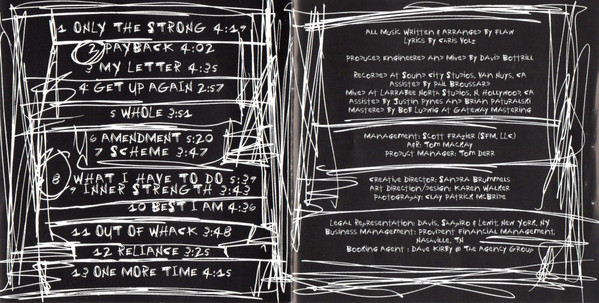 1 ONLY THE STRONG 4:19
2 PAYBACK 4:02
3 MY LETTER 4:35
4 GET UP AGAIN 2:57
5 WHOLE 3:51
6 AMENDMENT 5:20
7 SCHEME 3:47
8 WHAT I HAVE TO DO 5:39
9 INNER STRENGTH 3:43
10 BEST I AM 4:36
11 OUT OF WHACK 3:48
12 RELIANCE 3:25
13 ONE MORE TIME 4:15
All Music Written & Arranged By Flaw
Lyrics By Chris Volz
Produced, Engineered And Mixed By David Bottrill
Recorded At Sound City Studios, Van Nuys, CA
Assisted By Phil Broussard
Mixed At Larrabee North Studios, N. Hollywood, CA
Assisted By Justin Pynes And Brian Paturalski
Mastered By Bob Ludwig At Gateway Mastering
Management: Scott Frazier (SFM, LLC)
A&R: Tom Mackay
Product Manager: Tom Derr
Creative Director: Sandra Brummels
Art Direction/Design: Karen Walker
Photography: Clay Patrick McBride
Legal Representation: Davis, Shapiro & Lewit, New York, NY
Business Management: Provident Financial Management,
Nashville, TN
Booking Agent : Dave Kirby @ The Agency Group